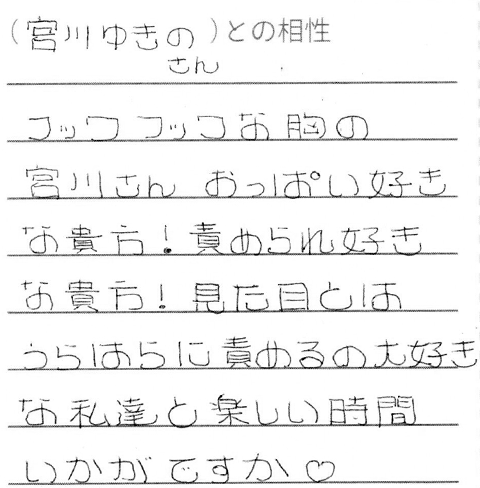 （宮川ゆきの）との相性
さん
フッワフッワな胸の
宮川さん おっぱい好き
な貴方！責められ好き
な貴方！見た目とは
うらはらに責めるの大好き
な私達と楽しい時間
いかがですか♡